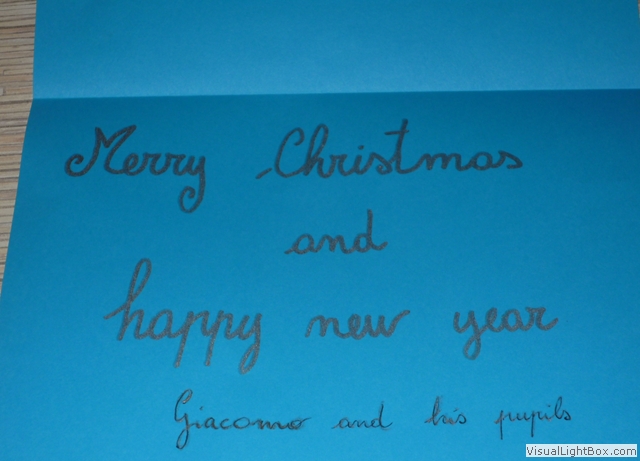 Merry Christmas
and
happy new year
Giacomo and his pupils
VisualLightBox.com